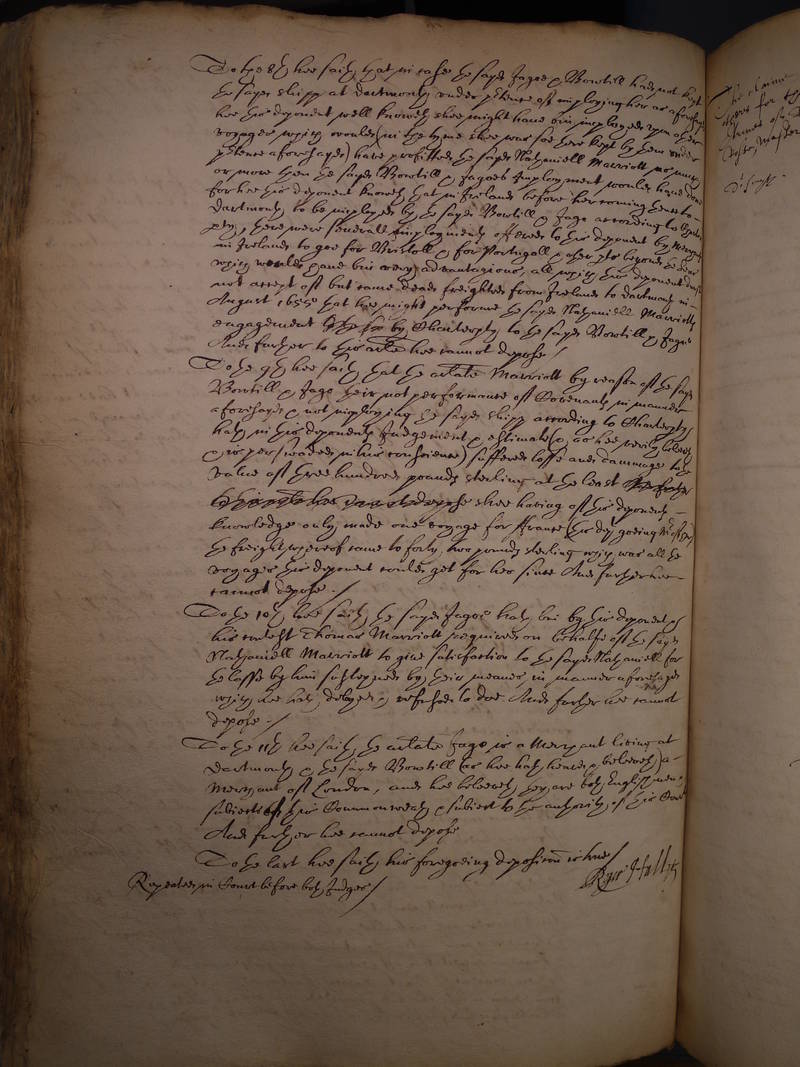 To the 8th hee saith that in case the sayd Jagoe & Bowtill had not kept
the sayd shipp at dartmouth under p'tence of imploying her as aforesayd
hee this deponent well knoweth shee might have bin imployed upon other
voyages which would (in the tyme shee was soe there kept by them under
p'tence aforesayd) have profitted the sayd Nathaniell Marriott as much
or more then the sayd Bowtill & Jagoes Imployment would have done
for hee this deponent knoweth that in Ireland before her coming thence to
dartmouth to be imployed by the sayd Bowtill & Jago according to Charter
pty, there were severall Imployments offered to this deponent by Merchants
in Ireland to goe for Bristoll & for Portugall & other pts beyond the seas
which would have bin very advantagious, all which this deponent did
not accept of but came dead freighted from Ireland to dartmouth in
August 1655 that hee might performe the sayd Nathaniell Marriotts
engagement by Charterpty to the sayd Bowtill & Jagoe
And further to this arlate hee cannot depose /
To the 9th hee saith that the arlate Marriott by reason of the sayd
Bowtill & Jago their not performance of Covenants in manner
aforesayd & not imploying the sayd shipp according to Charterpty,
hath in this deponents Judgement & estimate (& as hee verily beleeveth
& is perswaded in his conscience) suffered losse and dammage to the
value of three hundred pounds sterling at the least
shee having of this deponents
knowledge only made one voyage for ffrance (this dept goeing Master)
the freight whereof came to forty two pounds sterling which was all the
voyages this deponent could get for her since And further hee
cannot depose . /
To the 10th hee saith the sayd Jagoe hath bin by this deponent &
his Thomas Marriott required on behalfe of the sayd
Nathaniell Marriott to give satisfaction to the sayd Nathaniell for
the losse by him susteyned by their meanes, in manner aforesayd
which hee hath delayed & refused to doe And further hee cannot
depose . /
To the 11th hee saith the arlate Jago is a Merchant living at
dartmouth & the sayd Bowtill (as hee hath heard & beleeveth) a
Merchant of London, and hee beleeveth they are both English men
subjects of this Commonwealth & subject to the authority of this Court
And further hee cannot depose
To the last hee saith his foregoing deposition is true /
Repeated in Court before both Judges /